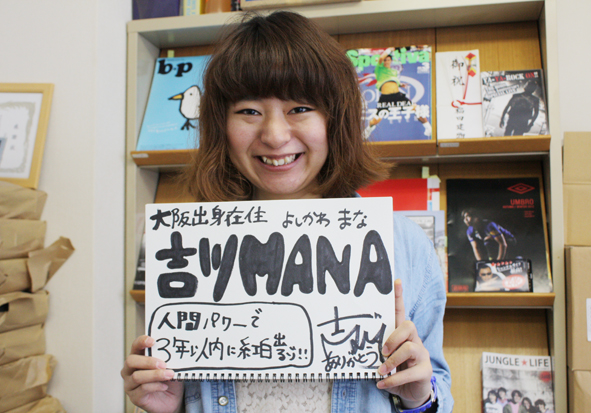 b*p
Sportiva
REAL DEA
御祝
ROCK
UMBRO
大阪出身在住 よしかわ まな
吉ツMANA
人間パワーで
3年以内に紅白出るゾ!!
ありがとう
JUNGLE★LIFE